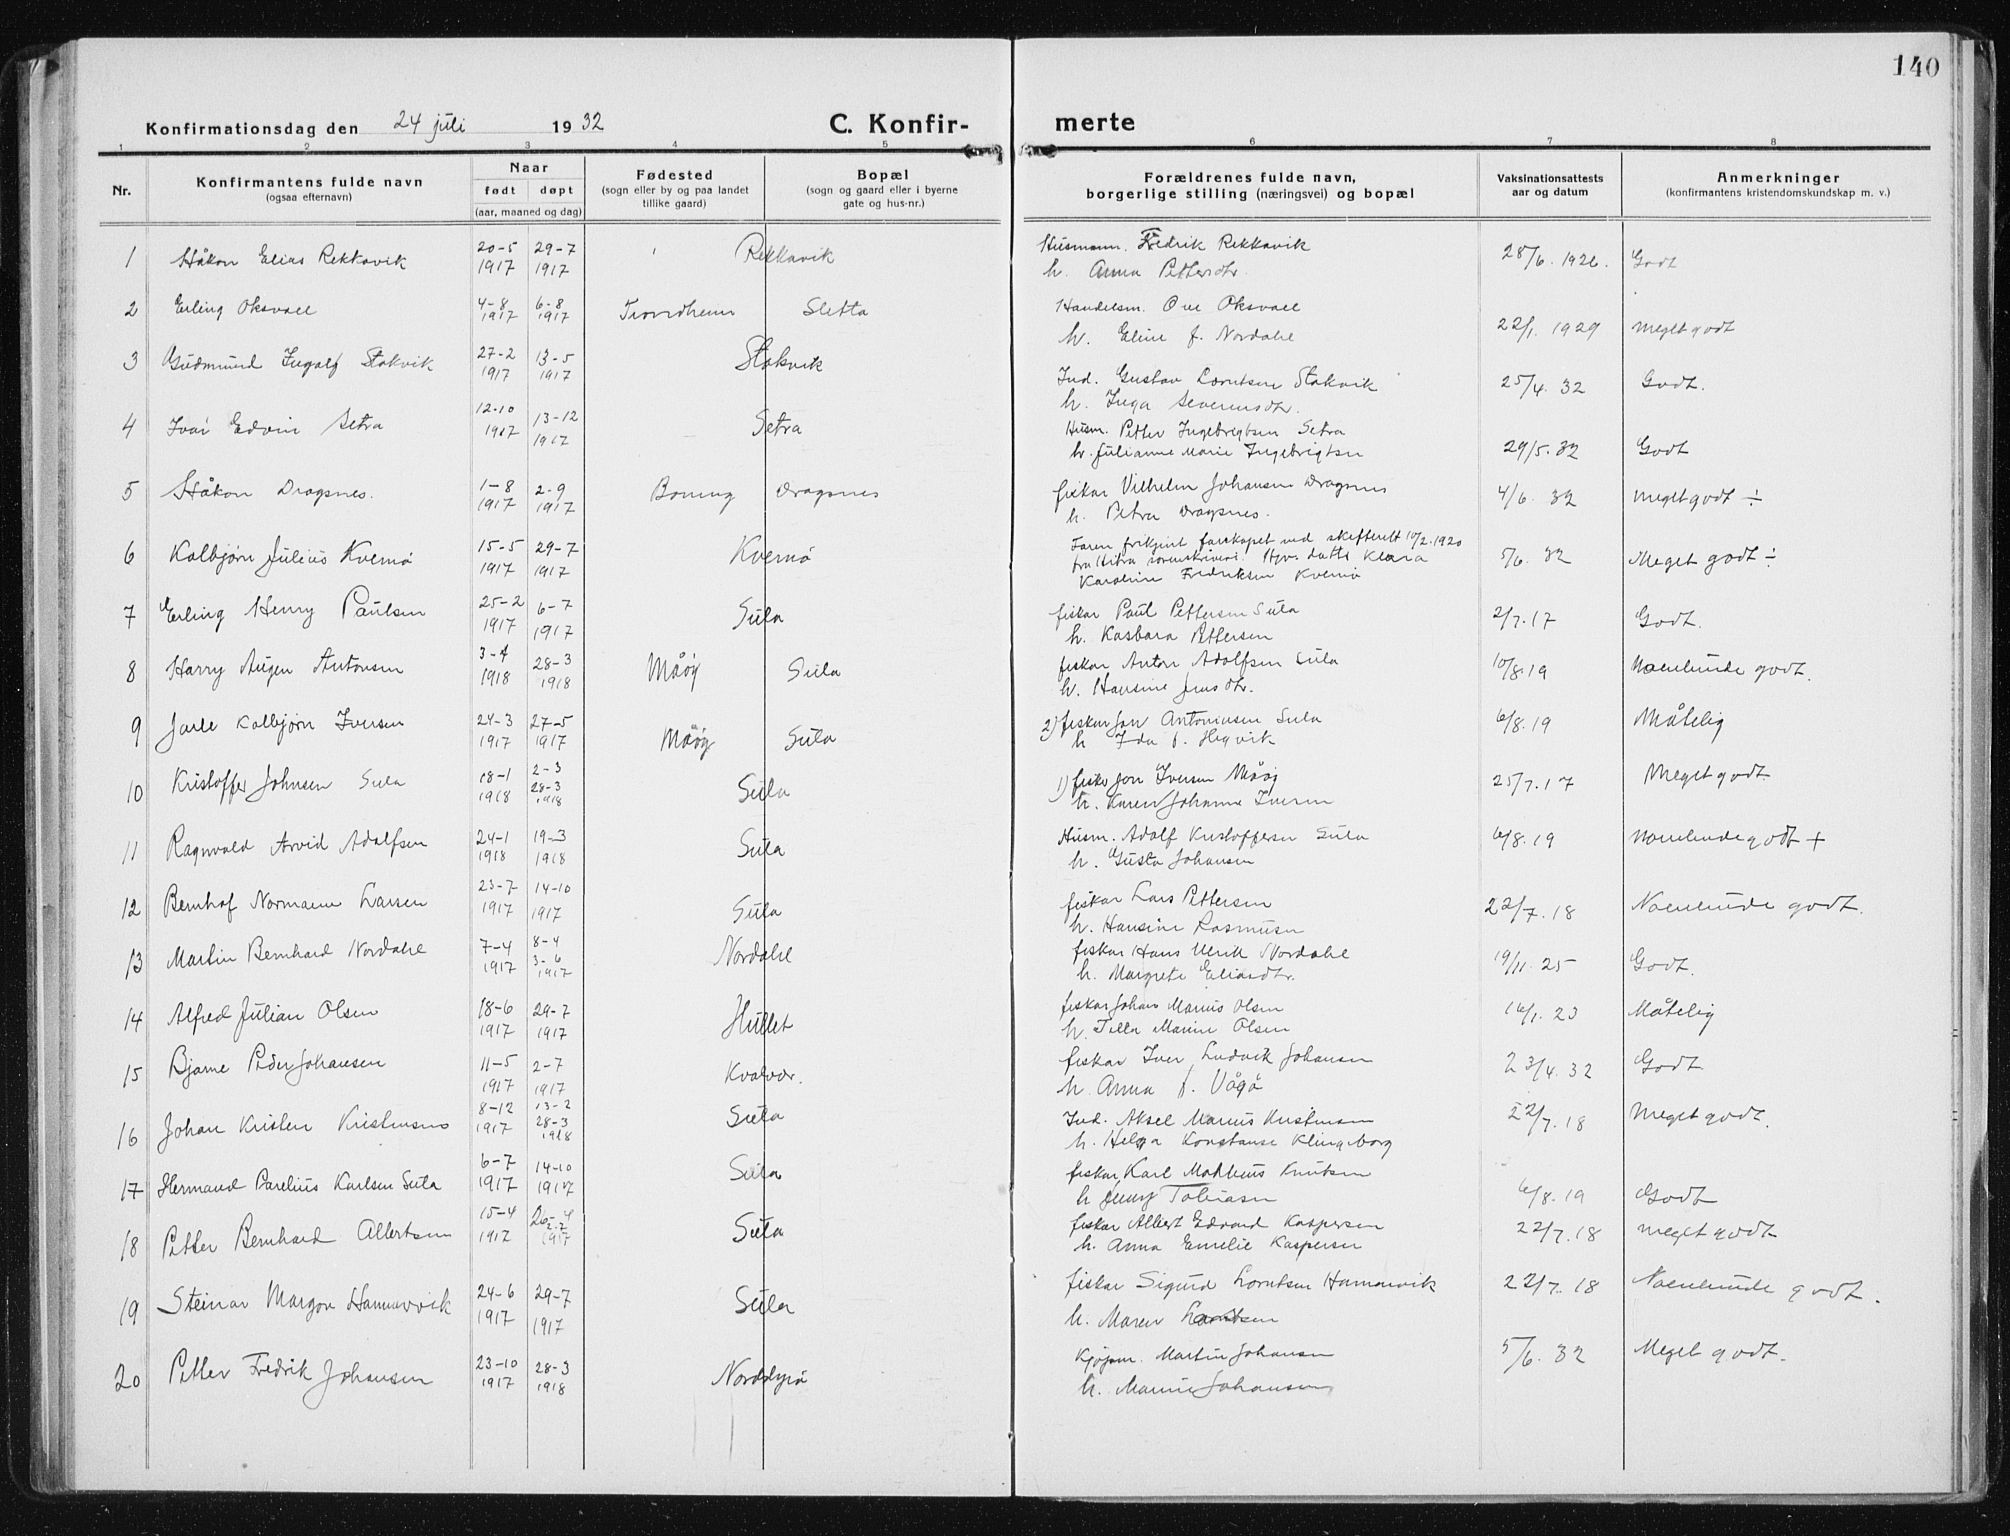 140
Konfirmationsdag den 24 juli 1932
C. Konfir-
merte
1 2 3 4 5 6 7 8
Nr.
Konfirmantens fulde navn
(ogsaa efternavn)
Naar
født døpt
(aar, maaned og dag)
Fødested
(sogn eller by og paa landet
tillike gaard)
Bopæl
(sogn og gaard eller i byerne
gate og hus-nr.)
Forældrenes fulde navn,
borgerlige stilling (næringsvei) og bopæl
Vaksinationsattests
aar og datum
Anmerkninger
(konfirmantens kristendomskundskap m. v.)
1 Håkon Elias Rekkavik 20-5 1917 29-7 1917 Rekkavik
Husmann. Fredrik Rekkavik
h. Anna Pettersdtr. 28/6. 1926. Godt
2 Erling Oksvoll 4-8 1917 6-8 1917 Trondheim Sletta
Handelsm. Ove Oksvoll
h. Eline f. Nordahl 22/1. 1929 Meget godt
3 Gudmund Ingolf Stokvik 27-2 1917 13-5 1917 Stokvik
Ind. Gustav Lorntsen Stokvik
h. Inga Severinsdtr. 25/4. 32 Godt.
4 Ivar Edvin Setra 12-10 1917 13-12 1917 Setra
Husm. Petter Ingebrigtsen Setra
h. Julianne Marie Ingebrigtsen 29/5. 32 Godt
5 Håkon Dragsnes. 1-8 1917 2-9 1917 Dragsnes
fiskar Vilhelm Johansen Dragsnes
h. Petra Dragsnes. 4/6. 32 Meget godt ÷
6 Kolbjørn Julius Kvernø 15-5 1917 29-7 1917 Kvernø
Faren frikjent farskapet ved skifterett 10/2. 1920
fra Hitra sorenskriveri. Hjv. datter Klara
Karoline Fredriksen Kvernø 5/6. 32 Meget godt ÷
7 Erling Henry Paulsen 25-2 1917 6-7 1917 Sula
fiskar Paul Pettersen Sula
h. Kasbara Pettersen 2/7. 17 Godt.
8 Harry Augen Antonsen 3-1 1918 28-3 1918 Måøy Sula
fiskar Anton Adolfsen Sula
h. Hansine Jensdtr. 10/8. 19 Noenlunde godt.
9 Jarle Kolbjørn Iversen 24-3 1917 27-5 1917 Måøy Sula
2) fiskar Jon Antoniusen Sula
h Ida f. Hegvik 6/8. 19 Måtelig
10 Kristoffer Johnsen Sula 18-1 1918 2-3 28-3 1918 Sula
1) fiskar Jon Iversen Måøy
h. Karen Johanne Iversen 25/7. 17 Meget godt
11 Ragnvald Arvid Adolfsen 24-1 1918 19-3 1918 Sula
Husm. Adolf Kristoffersen Sula
h. Gusta Johansen 6/8. 19 Noenlunde godt +
12 Bernhof Normann Larsen 23-7 1917 14-10 1917 Sula
fiskar Lars Pettersen
h. Hansine Rasmusen 22/7. 18 Noenlunde godt.
13 Martin Bernhard Nordahl 7-4 1917 8-4 3-6 1917 Nordahl
fiskar Hans Ulrik Nordahl
h. Margrete Eliasdtr. 19/11. 25 Godt.
14 Alfred Julian Olsen 18-6 1917 29-7 1917 Hullet
fiskar Johan Marius Olsen
h. Tella Marie Olsen 16/1. 23 Måtelig
15 Bjarne Peder Johansen 11-5 1917 2-7 1917 Kvalvær.
fiskar Iver Ludvik Johansen
h. Anna f. Vågø 23/4. 32 Godt
16 Johan Kristen Kristensen 8-12 1917 13-2 28-3 1918 Sula
Ind. Aksel Marius Kristensen
h. Helga Konstanse Klingeborg 22/7. 18 Meget godt.
17 Hermand Parelius Karlsen Sula 6-7 1917 14-10 1917 Sula
fiskar Karl Matheus Knutsen
h Jenny Tobiasen 6/8. 19 Godt
18 Petter Bernhard Albertsen 15-4 1917 26-4 2-7 1917 Sula
fiskar Albert Edvard Kaspersen
h. Anna Emelie Kaspersen 22/7. 18 meget godt
19 Steinar Margon Hammarvik 24-6 1917 29-7 1917 Sula
fiskar Sigurd Lorntsen Hamarvik
h. Maren Lorntsen 22/7. 18 Noenlunde godt.
20 Petter Fredrik Johansen 23-10 1917 28-3 1918 Norddyrø
Kjøpm. Martin Johansen
h. Marie Johansen 5/6. 32 Meget godt.